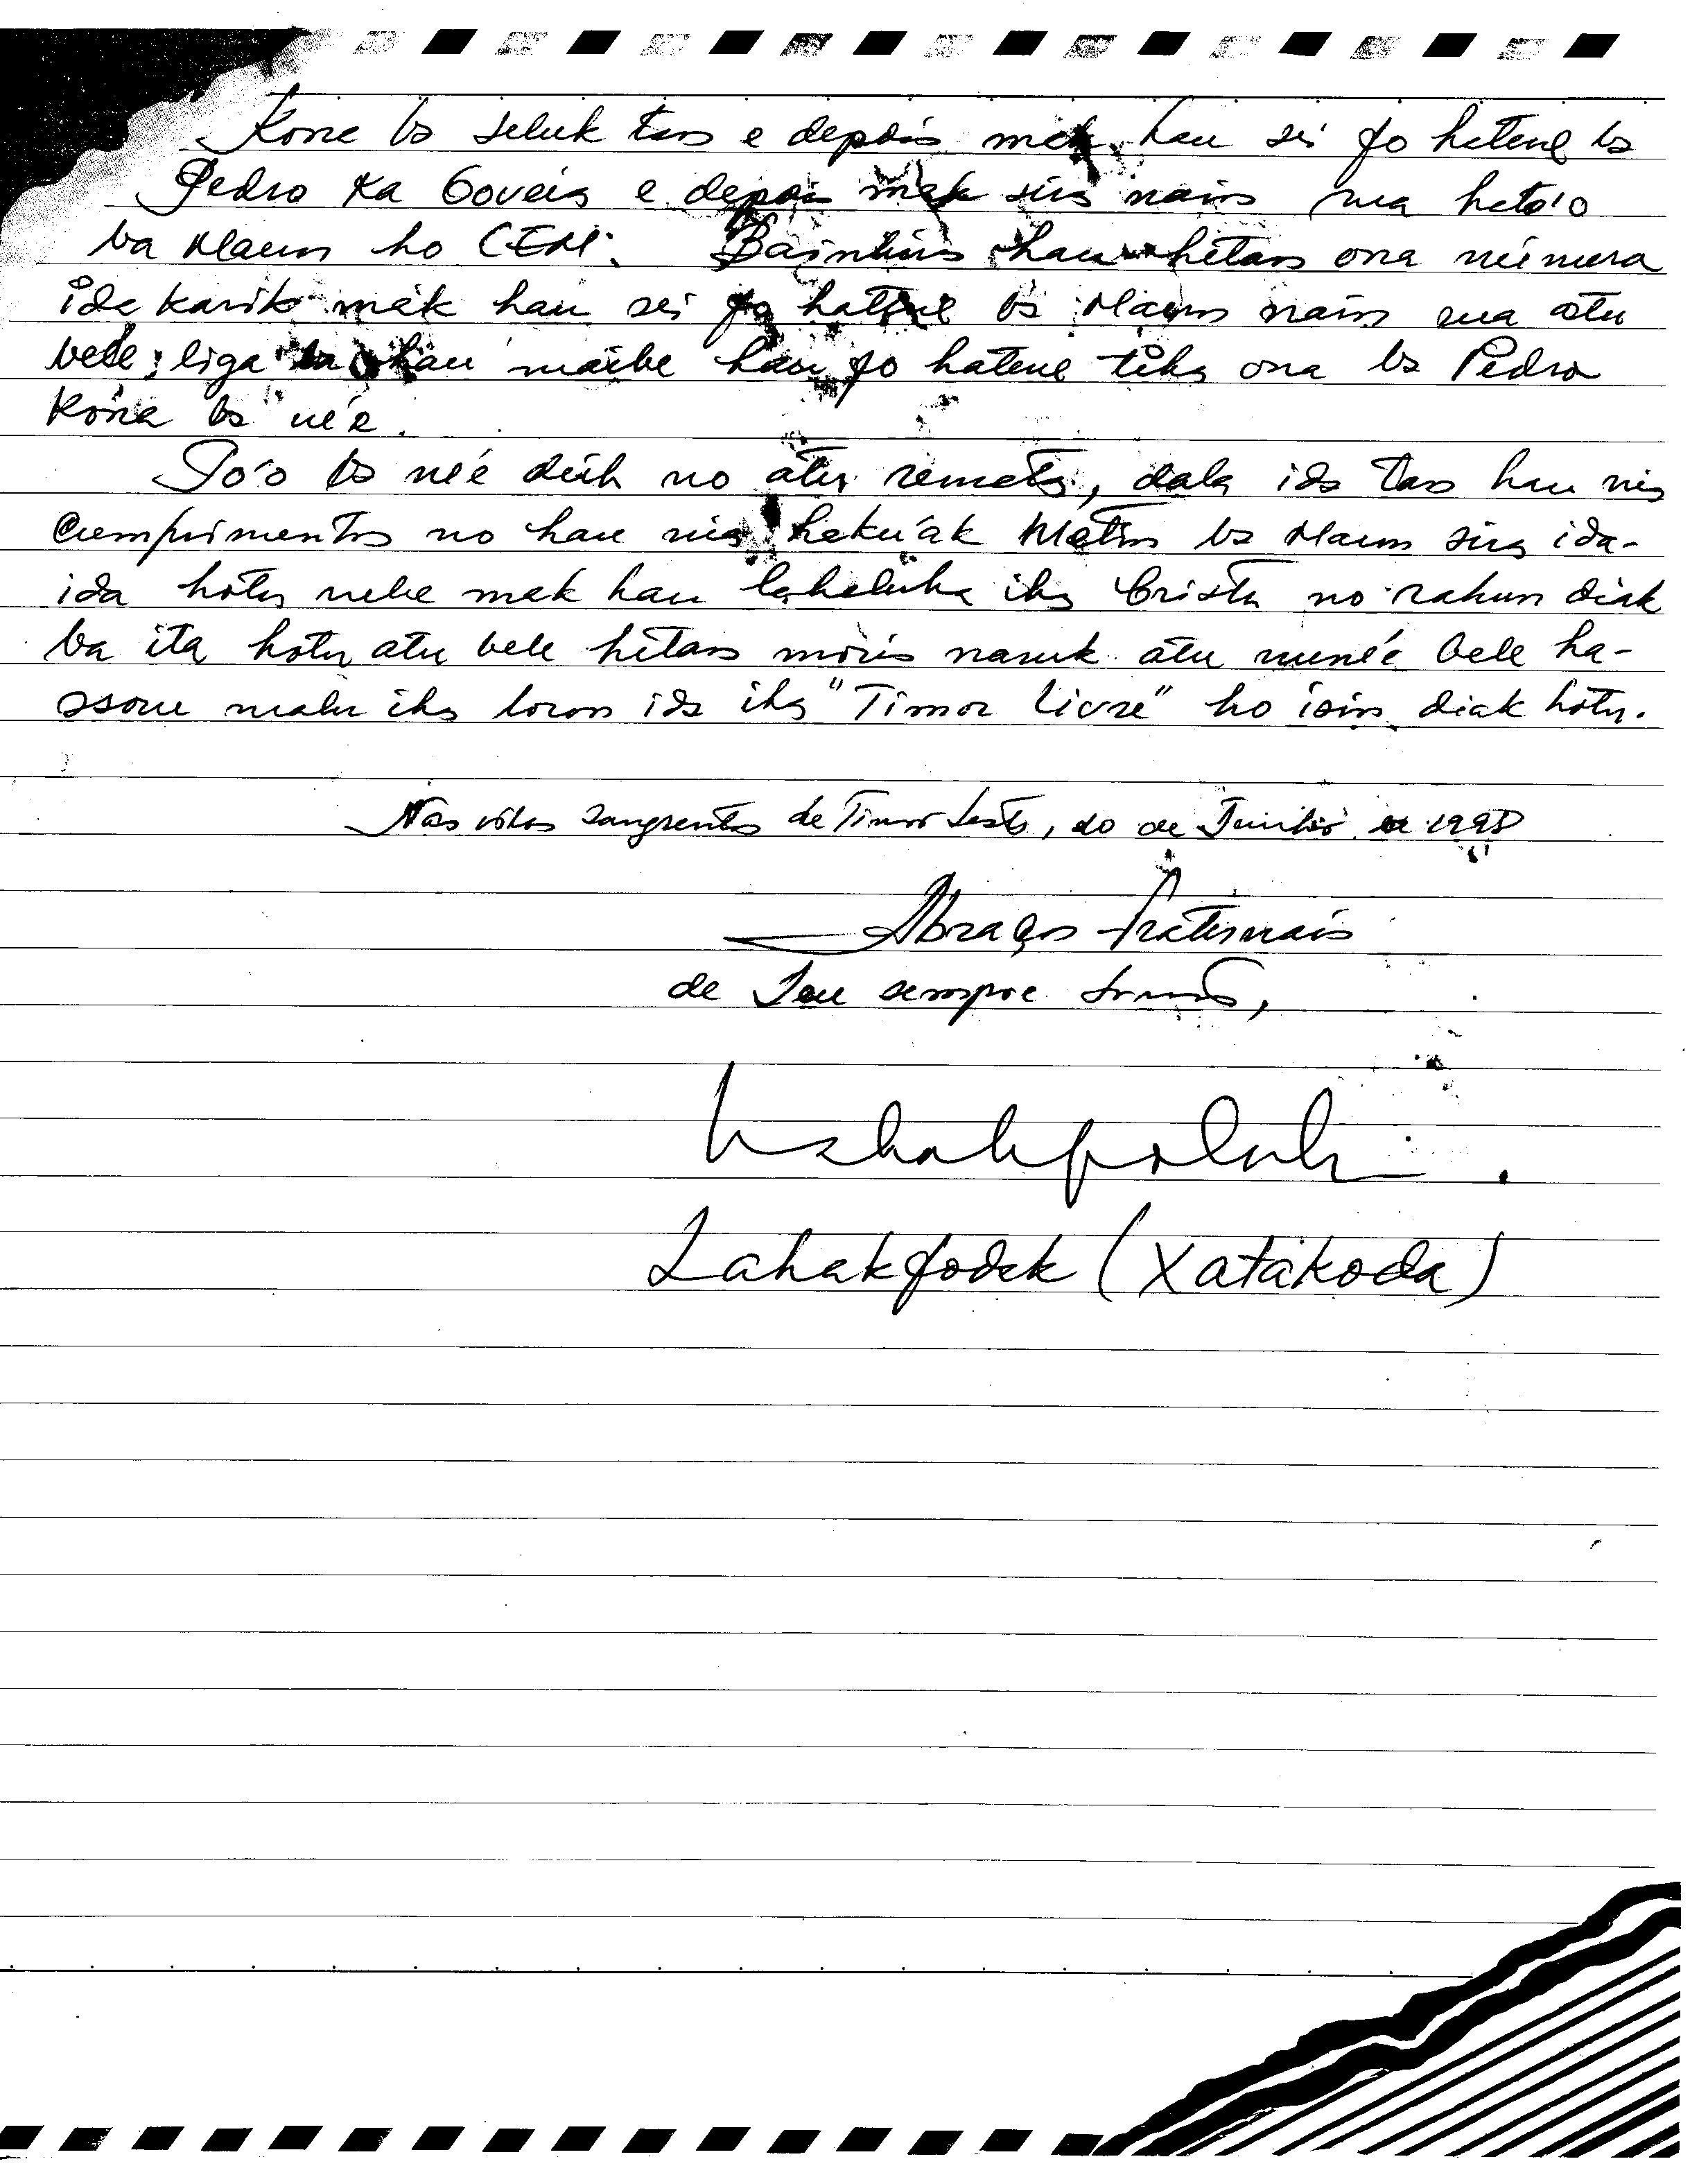 Kona ba seluk tan e depois mak hau sei fo hatene ba
Pedro Ka Goveia e depois mak sira nain rua hato'o
ba Maun ho CEM. Bainhira hau hetan ona número
ida karik mak hau sei fo hatene ba Maun nain rua atu
bele liga ba hau maibe hau fo hatene tiha ona ba Pedro
Kona ba ne'e.
To'o ba ne'e deih no atu remata, dala ida tan hau nia
Cumprimentos no hau nia haku'ak Metin ba Maun sira ida-
ida hotu nebe mak hau lahaluha iha Cristu no rahun diak
ba ita hotu atu bele hetan moris naruk atu nune'e bele ha-
ssoru malu iha loron ida iha "Timor Livre" ho isin diak hotu.
Nas sangrentas de Timor Leste, 20 de Junho de 1998
Abraços fraternais
de Seu sempre Irmão,
Lahakfodak (Xatakoda)